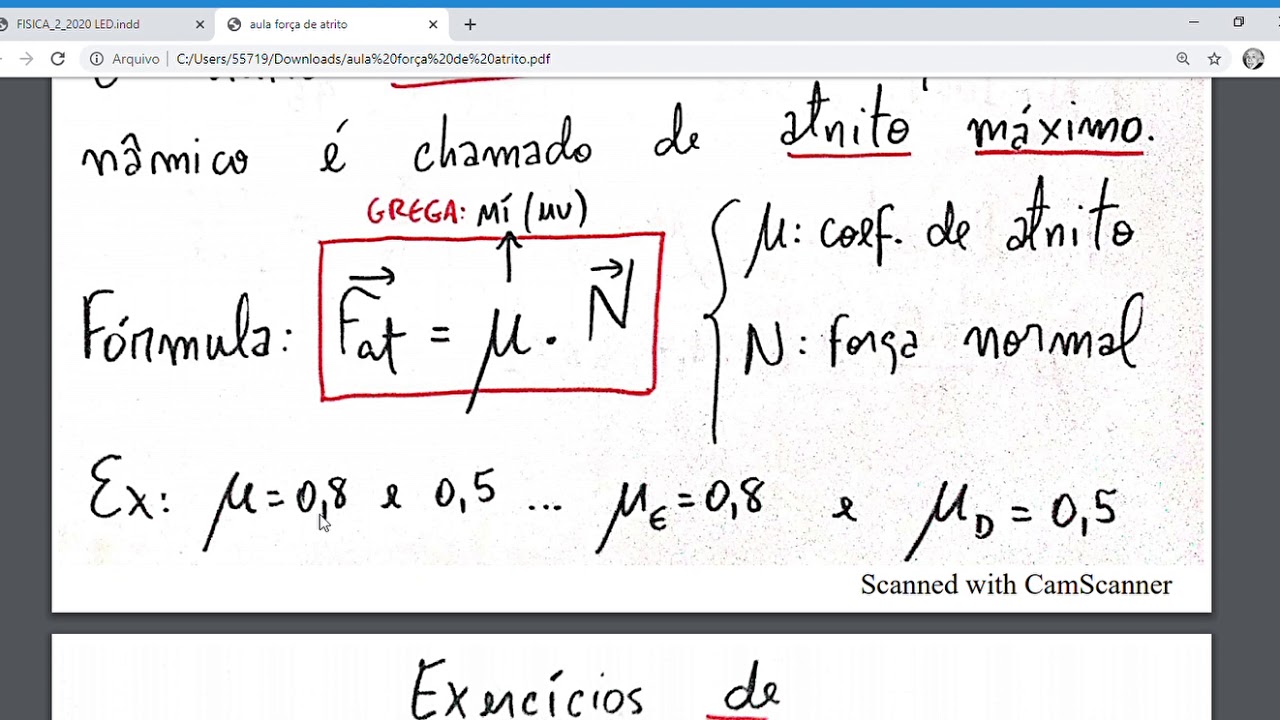 FISICA_2_2020 LED.indd
aula força de atrito
Arquivo
C:/Users/55719/Downloads/aula%20força%20de%20atrito.pdf
nâmico é chamado de atrito máximo.
GREGA: MÍ (MU)
Fórmula: Fat = μ . N
μ: coef. de atrito
N: força normal
Ex: μ = 0,8 e 0,5 ... μE = 0,8 e μD = 0,5
Scanned with CamScanner
Exercícios de